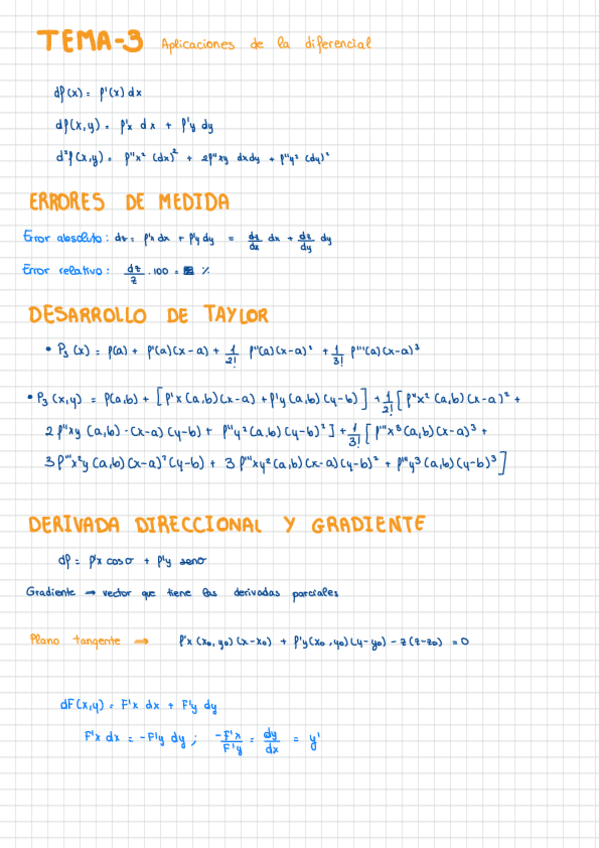 TEMA-3 Aplicaciones de la diferencial
df(x) = f'(x) dx
df(x,y) = f'x dx + f'y dy
d²f(x,y) = f''x² (dx)² + 2f''xy dxdy + f''y² (dy)²
ERRORES DE MEDIDA
Error absoluto: dz = f'x dx + f'y dy = dz/dx dx + dz/dy dy
Error relativo: dz/z · 100 = %
DESARROLLO DE TAYLOR
• P₃ (x) = f(a) + f'(a)(x-a) + 1/2! f''(a)(x-a)² + 1/3! f'''(a)(x-a)³
• P₃ (x,y) = f(a,b) + [f'x (a,b)(x-a) + f'y (a,b)(y-b)] + 1/2! [f''x² (a,b)(x-a)² +
2 f''xy (a,b) · (x-a)(y-b) + f''y² (a,b)(y-b)²] + 1/3! [f'''x³ (a,b)(x-a)³ +
3 f'''x²y (a,b)(x-a)²(y-b) + 3 f'''xy² (a,b)(x-a)(y-b)² + f'''y³ (a,b)(y-b)³]
DERIVADA DIRECCIONAL Y GRADIENTE
df = f'x cos σ + f'y sen σ
Gradiente → vector que tiene las derivadas parciales
Plano tangente → f'x (x₀, y₀)(x-x₀) + f'y (x₀, y₀)(y-y₀) - z(z-z₀) = 0
dF(x,y) = F'x dx + F'y dy
F'x dx = -F'y dy ; -F'x/F'y = dy/dx = y'